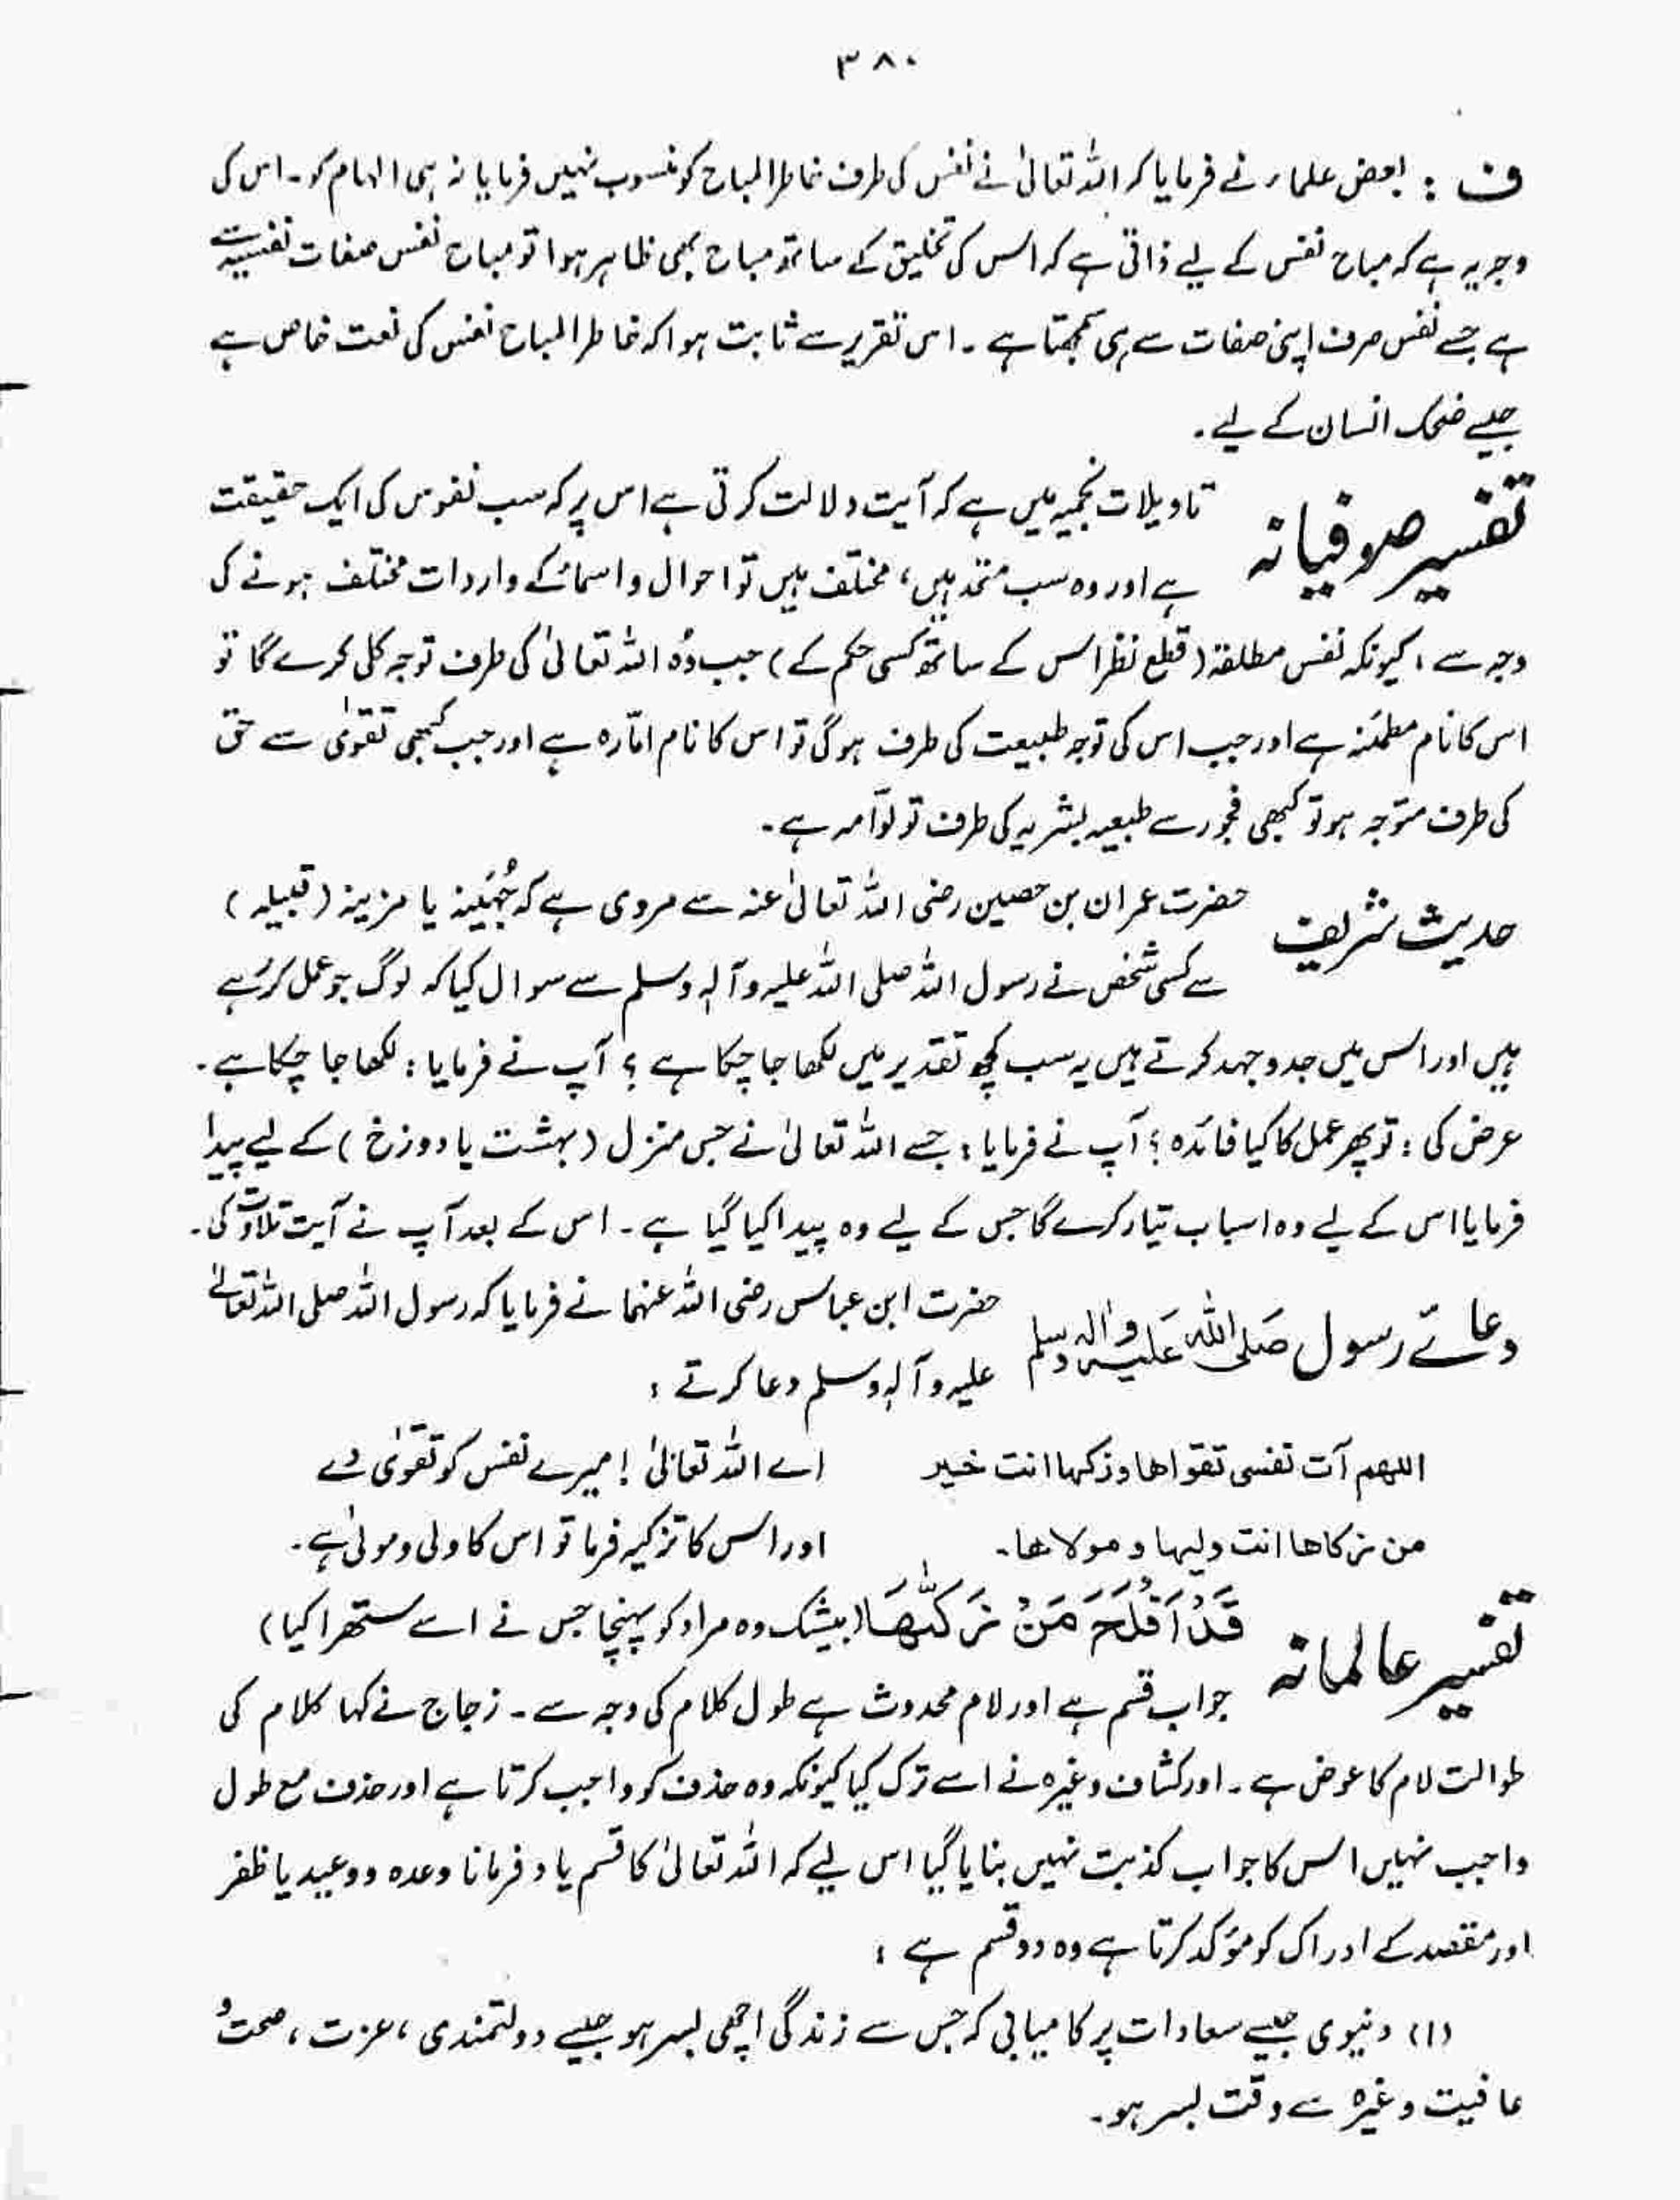 ۳۸۰
ف : بعض علماء نے فرمایا کہ اللہ تعالیٰ نے نفس کی طرف خاطر المباح کو منسوب نہیں فرمایا نہ ہی الہام کو۔ اس کی
وجہ یہ ہے کہ مباح نفس کے لیے ذاتی ہے کہ اس کی تخلیق کے ساتھ مباح بھی ظاہر ہوا تو مباح نفس صفات نفسیت
ہے جسے نفس صرف اپنی صفات سے ہی سمجھتا ہے ۔ اس تقریر سے ثابت ہوا کہ خاطر المباح نفس کی نعت خاص ہے
جیسے ضحک انسان کے لیے ۔
تفسیر صوفیانہ تاویلات نجمیہ میں ہے کہ آیت دلالت کرتی ہے اس پر کہ سب نفوس کی ایک حقیقت
ہے اور وہ سب متحد ہیں، مختلف ہیں تو احوال و اسماء کے واردات مختلف ہونے کی
وجہ سے ، کیونکہ نفس مطلقۃ (قطع نظر اس کے ساتھ کسی حکم کے) جب وُہ اللہ تعالیٰ کی طرف توجہ کلی کرے گا تو
اس کا نام مطمئنہ ہے اور جب اس کی توجہ طبیعت کی طرف ہو گی تو اس کا نام امّارہ ہے اور جب کبھی تقوٰی سے حق
کی طرف متوجہ ہو تو کبھی فجور سے طبعیہ بشریہ کی طرف تو لوّامہ ہے ۔
حدیث شریف حضرت عمران بن حصین رضی اللہ تعالیٰ عنہ سے مروی ہے کہ جُہَینہ یا مزینہ (قبیلہ)
سے کسی شخص نے رسول اللہ صلی اللہ علیہ وآلہ وسلم سے سوال کیا کہ لوگ جو عمل کر رہے
ہیں اور اس میں جدوجہد کرتے ہیں یہ سب کچھ تقدیر میں لکھا جا چکا ہے ؟ آپ نے فرمایا : لکھا جا چکا ہے ۔
عرض کی : تو پھر عمل کا کیا فائدہ ؟ آپ نے فرمایا : جسے اللہ تعالیٰ نے جس منزل (بہشت یا دوزخ) کے لیے پیدا
فرمایا اس کے لیے وہ اسباب تیار کرے گا جس کے لیے وہ پیدا کیا گیا ہے ۔ اس کے بعد آپ نے آیت تلاوت کی ۔
دعائے رسول صَلی اللہ عَلیہ واٰلہ وسلم حضرت ابن عباس رضی اللہ عنہما نے فرمایا کہ رسول اللہ صلی اللہ تعالےٰ
علیہ وآلہ وسلم دعا کرتے :
اللھم آت نفسی تقواھا وزکھا انت خیر اے اللہ تعالیٰ ! میرے نفس کو تقوٰی دے
من زکاھا انت ولیہا و مولاھا۔ اور اس کا تزکیہ فرما تو اس کا ولی و مولیٰ ہے ۔
تفسیر عالمانہ قَدْ اَفْلَحَ مَنْ زَکّٰھَا (بیشک وہ مراد کو پہنچا جس نے اسے ستھرا کیا)
جواب قسم ہے اور لام محدوث ہے طول کلام کی وجہ سے ۔ زجاج نے کہا کلام کی
طوالت لام کا عوض ہے ۔ اور کشاف وغیرہ نے اسے ترک کیا کیونکہ وہ حذف کو واجب کرتا ہے اور حذف مع طول
واجب نہیں اس کا جواب کذبت نہیں بنایا گیا اس لیے کہ اللہ تعالیٰ کا قسم یاد فرمانا وعدہ و وعید یا ظفر
اور مقصد کے ادراک کو مؤکد کرتا ہے وہ دو قسم ہے :
(۱) دنیوی جیسے سعادات پر کامیابی کہ جس سے زندگی اچھی بسر ہو جیسے دولتمندی ، عزت ، صحت و
عافیت وغیرہ سے وقت بسر ہو ۔